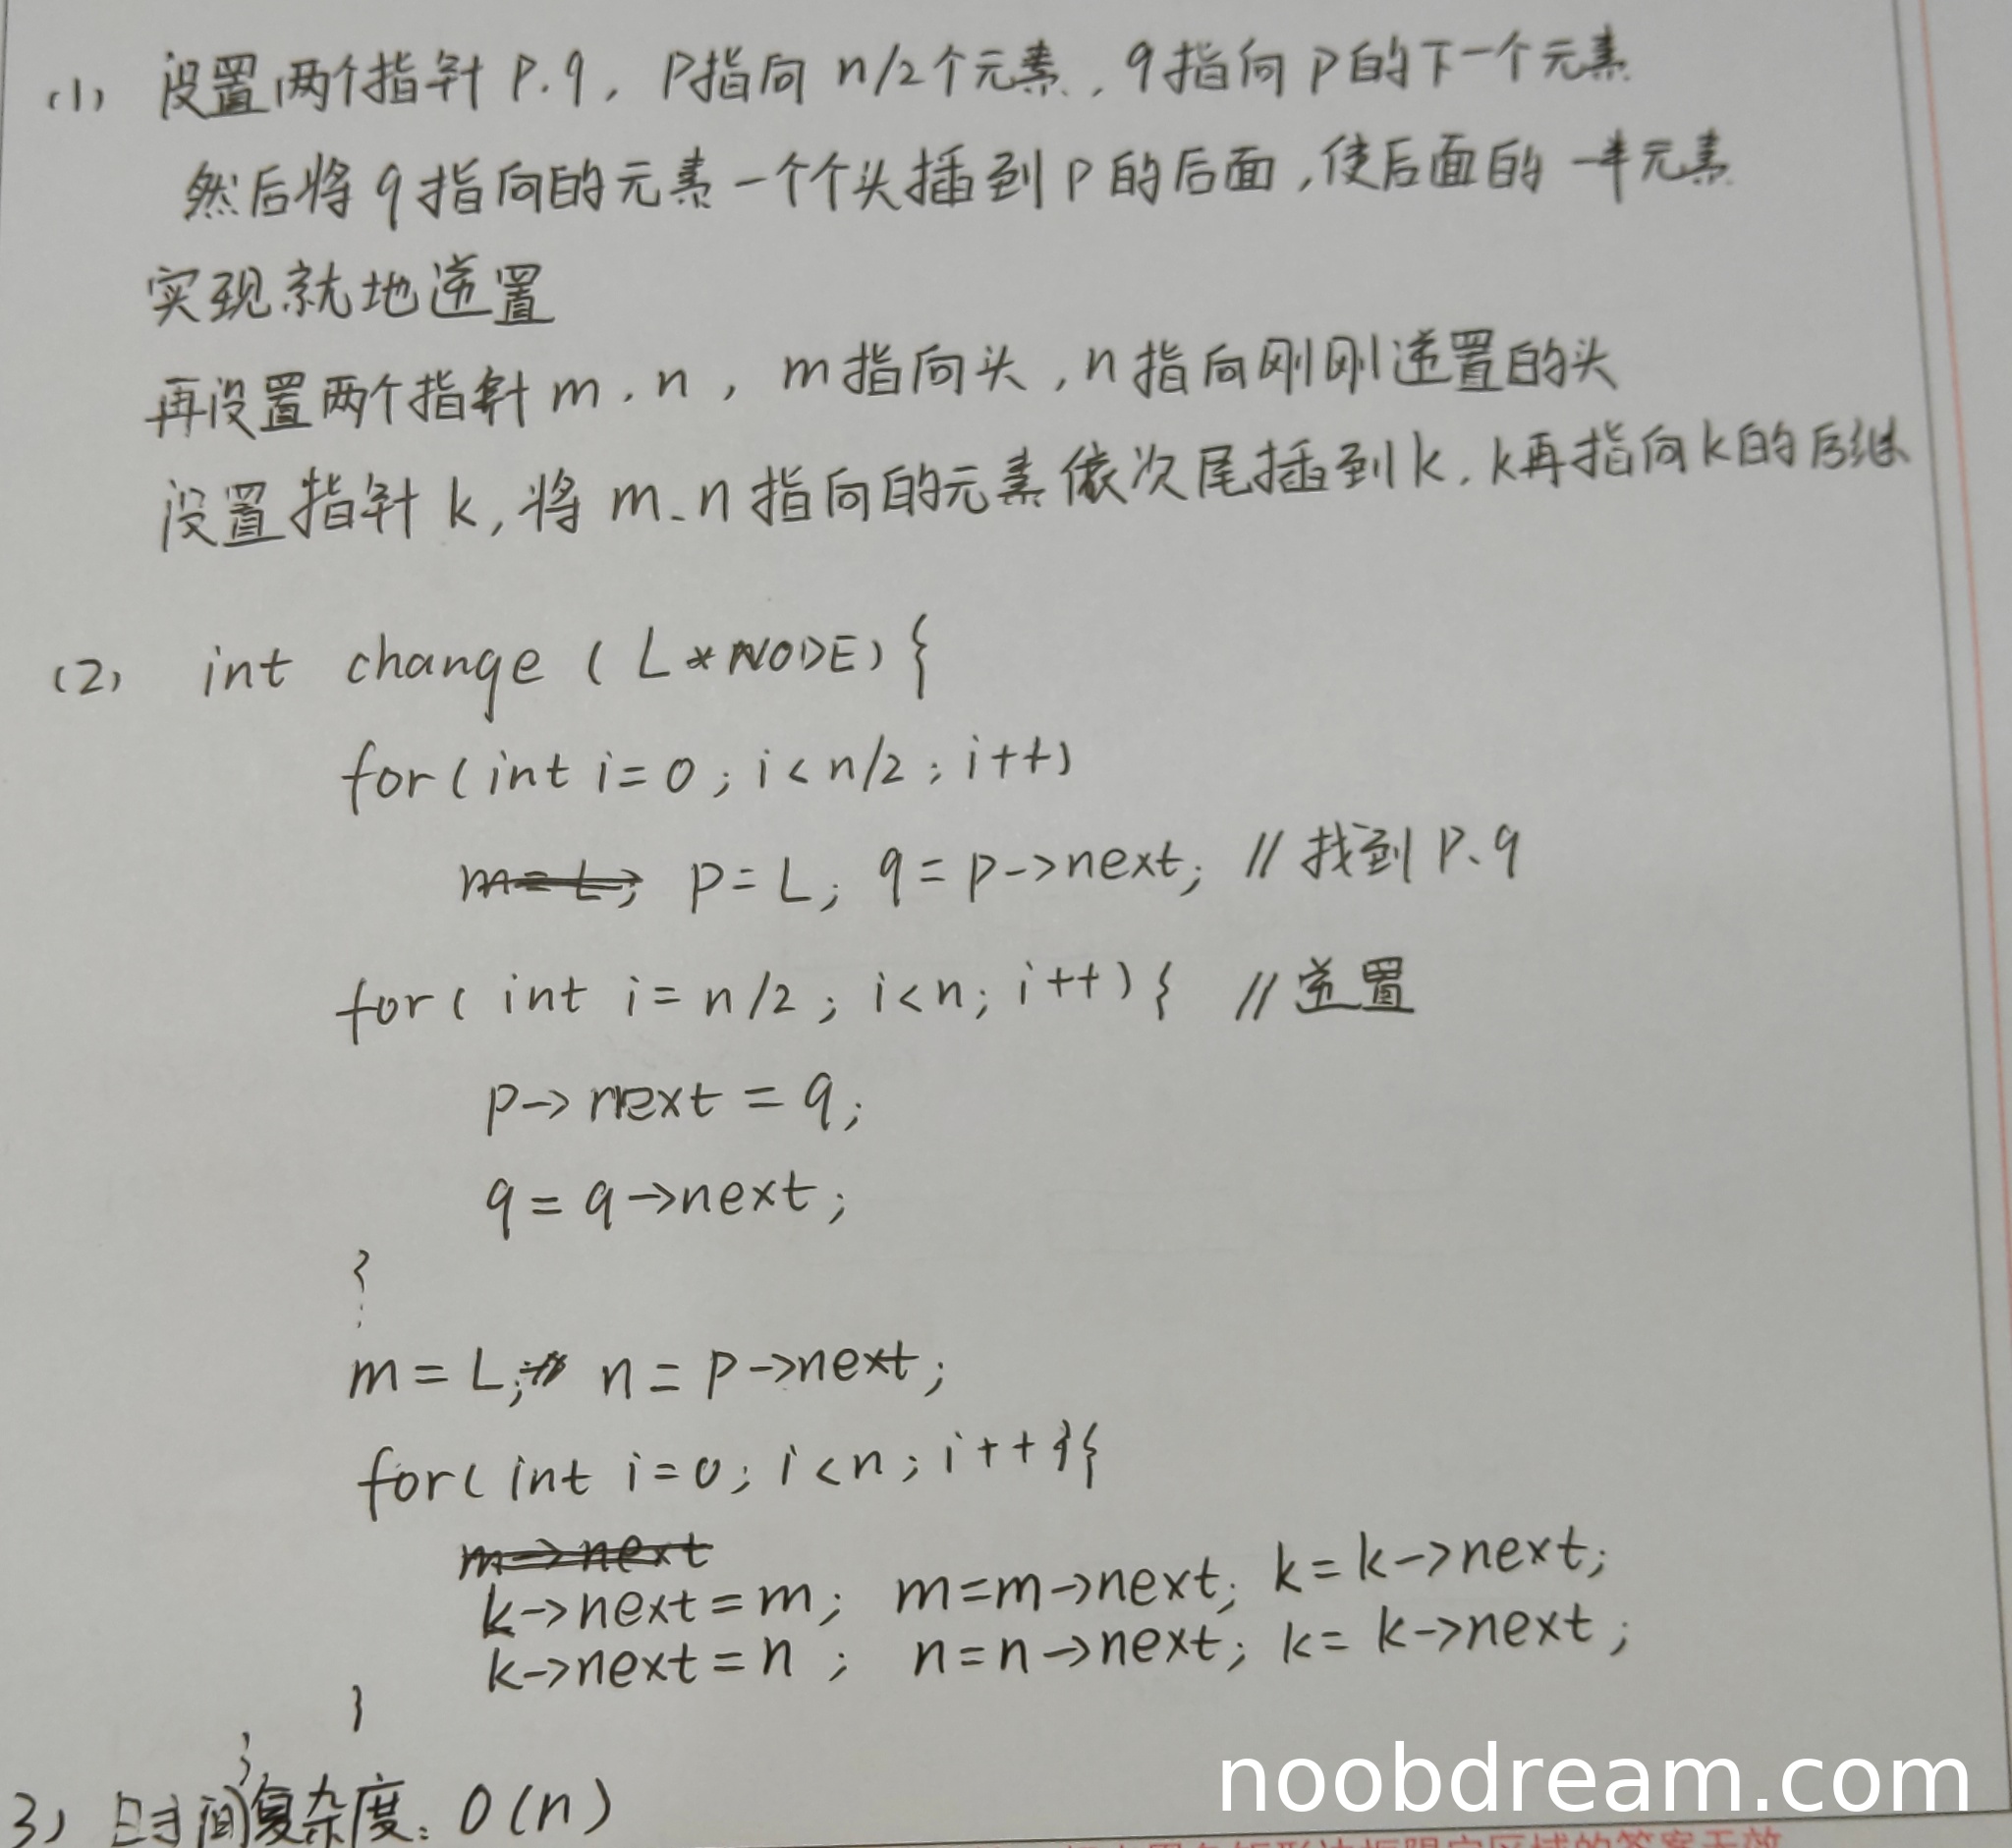 (1) 设置两个指针 p.q, p指向 n/2个元素, q指向 p的下一个元素
然后将 q指向的元素一个个头插到 p的后面,使后面的一半元素
实现就地逆置
再设置两个指针 m,n, m指向头,n指向刚刚逆置的头
设置指针 k,将 m、n指向的元素依次尾插到k,k再指向k的后继
(2) int change (L*NODE){
for(int i=0;i<n/2;i++)
p=L; q=p->next; //找到 p、q
for(int i=n/2;i<n;i++){ //逆置
p->next=q;
q=q->next;
}
m=L; n=p->next;
for(int i=0;i<n;i++){
m->next
k->next=m; m=m->next; k=k->next;
k->next=n; n=n->next; k=k->next;
}
}
3) 时间复杂度: O(n)
noobdream.com